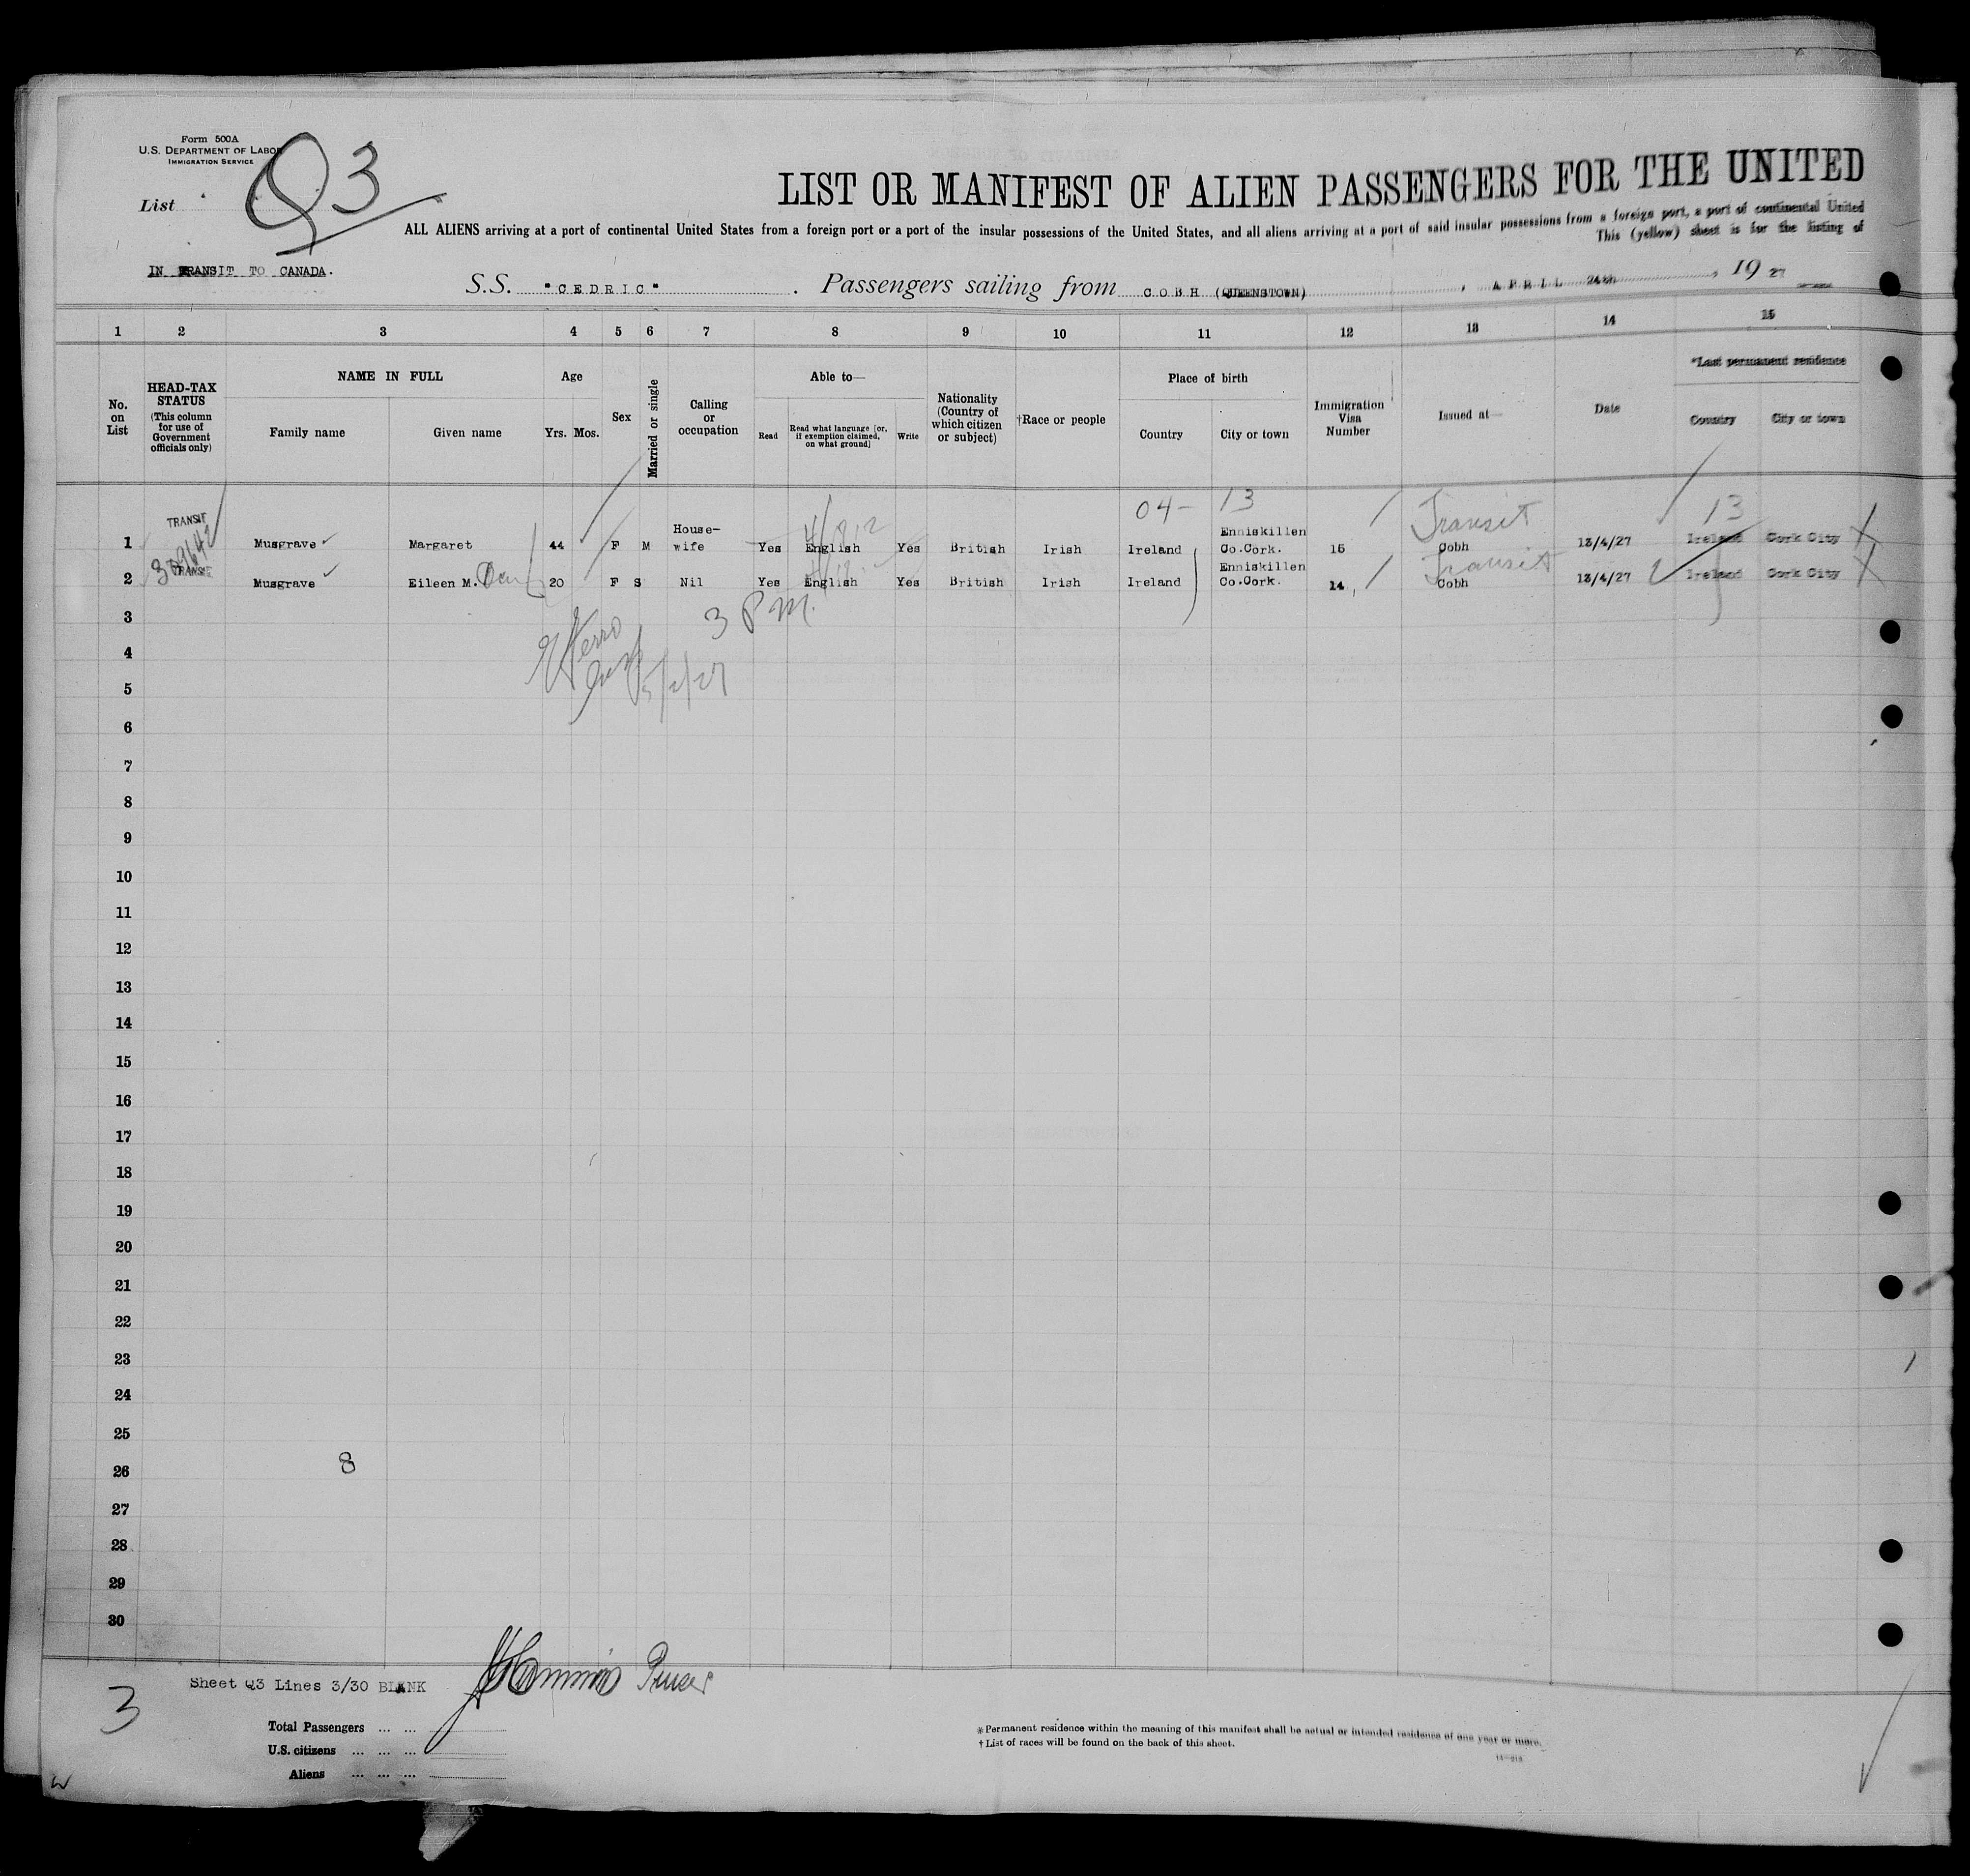 Form 500A
U.S. DEPARTMENT OF LABOR
IMMIGRATION SERVICE
List Q3
LIST OR MANIFEST OF ALIEN PASSENGERS FOR THE UNITED
ALL ALIENS arriving at a port of continental United States from a foreign port or a port of the insular possessions of the United States, and all aliens arriving at a port of said insular possessions from a foreign port, a port of continental United
This (yellow) sheet is for the listing of
IN TRANSIT TO CANADA.
S.S. "CEDRIC". Passengers sailing from COBH (QUEENSTOWN), APRIL 24th, 1927
1 2 3 4 5 6 7 8 9 10 11 12 13 14 15
No. on List
HEAD-TAX STATUS
(This column for use of Government officials only)
NAME IN FULL
Family name
Given name
Age
Yrs. Mos.
Sex
Married or single
Calling or occupation
Able to—
Read
Read what language [or, if exemption claimed, on what ground]
Write
Nationality (Country of which citizen or subject)
†Race or people
Place of birth
Country
City or town
Immigration Visa Number
Issued at—
Date
*Last permanent residence
Country
City or town
04- 13 Transit 13
1 TRANSIT Musgrave Margaret 44 F M House-wife Yes English Yes British Irish Ireland Enniskillen Co.Cork. 15 Cobh 13/4/27 Ireland Cork City
309642
Transit
2 TRANSIT Musgrave Eileen M. 20 F S Nil Yes English Yes British Irish Ireland Enniskillen Co.Cork. 14 Cobh 13/4/27 Ireland Cork City
3 3 PM.
4
5 5/2/27
6
7
8
9
10
11
12
13
14
15
16
17
18
19
20
21
22
23
24
25
26 8
27
28
29
30
Sheet Q3 Lines 3/30 BLANK
Purser
3
Total Passengers ... ...
U.S. citizens ... ... ...
Aliens ... ... ...
* Permanent residence within the meaning of this manifest shall be actual or intended residence of one year or more.
† List of races will be found on the back of this sheet.